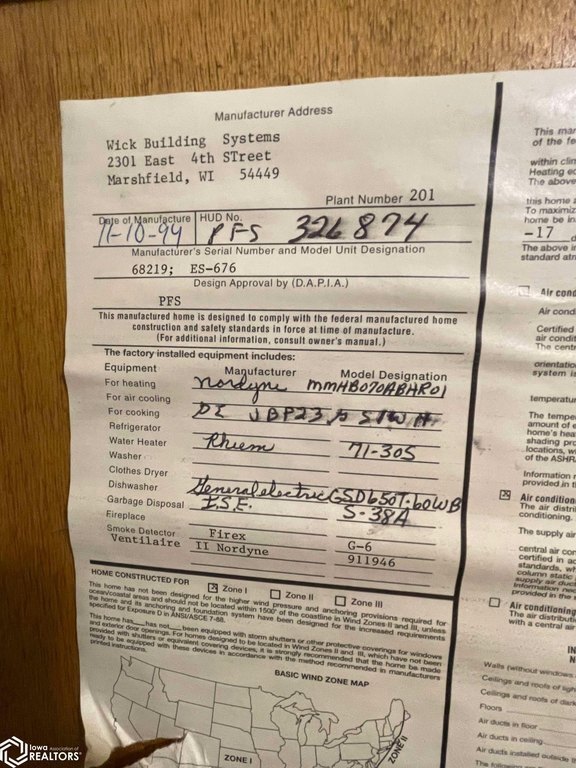 Manufacturer Address
Wick Building Systems
2301 East 4th STreet
Marshfield, WI 54449
Plant Number 201
Date of Manufacture HUD No.
11-10-94 PFS 326874
Manufacturer's Serial Number and Model Unit Designation
68219; ES-676
Design Approval by (D.A.P.I.A.)
PFS
This manufactured home is designed to comply with the federal manufactured home
construction and safety standards in force at time of manufacture.
(For additional information, consult owner's manual.)
The factory installed equipment includes:
Equipment Manufacturer Model Designation
For heating Nordyne MMHB070ABHR01
For air cooling
For cooking JBP23
Refrigerator
Water Heater Rhiem 71-305
Washer
Clothes Dryer
Dishwasher General electric GSD650T-60WB
Garbage Disposal I.S.E. S-38A
Fireplace
Smoke Detector Firex G-6
Ventilaire II Nordyne 911946
HOME CONSTRUCTED FOR Zone I Zone II Zone III
This home has not been designed for the higher wind pressure and anchoring provisions required for
ocean/coastal areas and should not be located within 1500' of the coastline in Wind Zones II and III, unless
the home and its anchoring and foundation system have been designed for the increased requirements
specified for Exposure D in ANSI/ASCE 7-88.
This home has___ has not___ been equipped with storm shutters or other protective coverings for windows
and exterior door openings. For homes designed to be located in Wind Zones II and III, which have not been
provided with shutters or equivalent covering devices, it is strongly recommended that the home be made
ready to be equipped with these devices in accordance with the method recommended in manufacturers
printed instructions.
BASIC WIND ZONE MAP
ZONE I
ZONE II
of the
within
Heating
The above
this home
To maximiz
home be in
-17
The above
standard
Air cond
Air cond
Certified
air condit
The centr
orientatio
system is
temperatur
The tempe
amount of e
home's hea
shading pro
locations, w
of the ASHR
Information
provided in
Air condition
The air distri
conditioning.
The supply air
central air con
certified in
standards, wh
column static
supply air duc
Information
provided in the
Air conditioning
The air distributi
with a central air
Walls (without windows
Ceilings and roofs of ligh
Ceilings and roofs of dark
Floors
Air ducts in floor
Air ducts in ceiling
Air ducts installed outside
The following are
Iowa Association of
REALTORS®